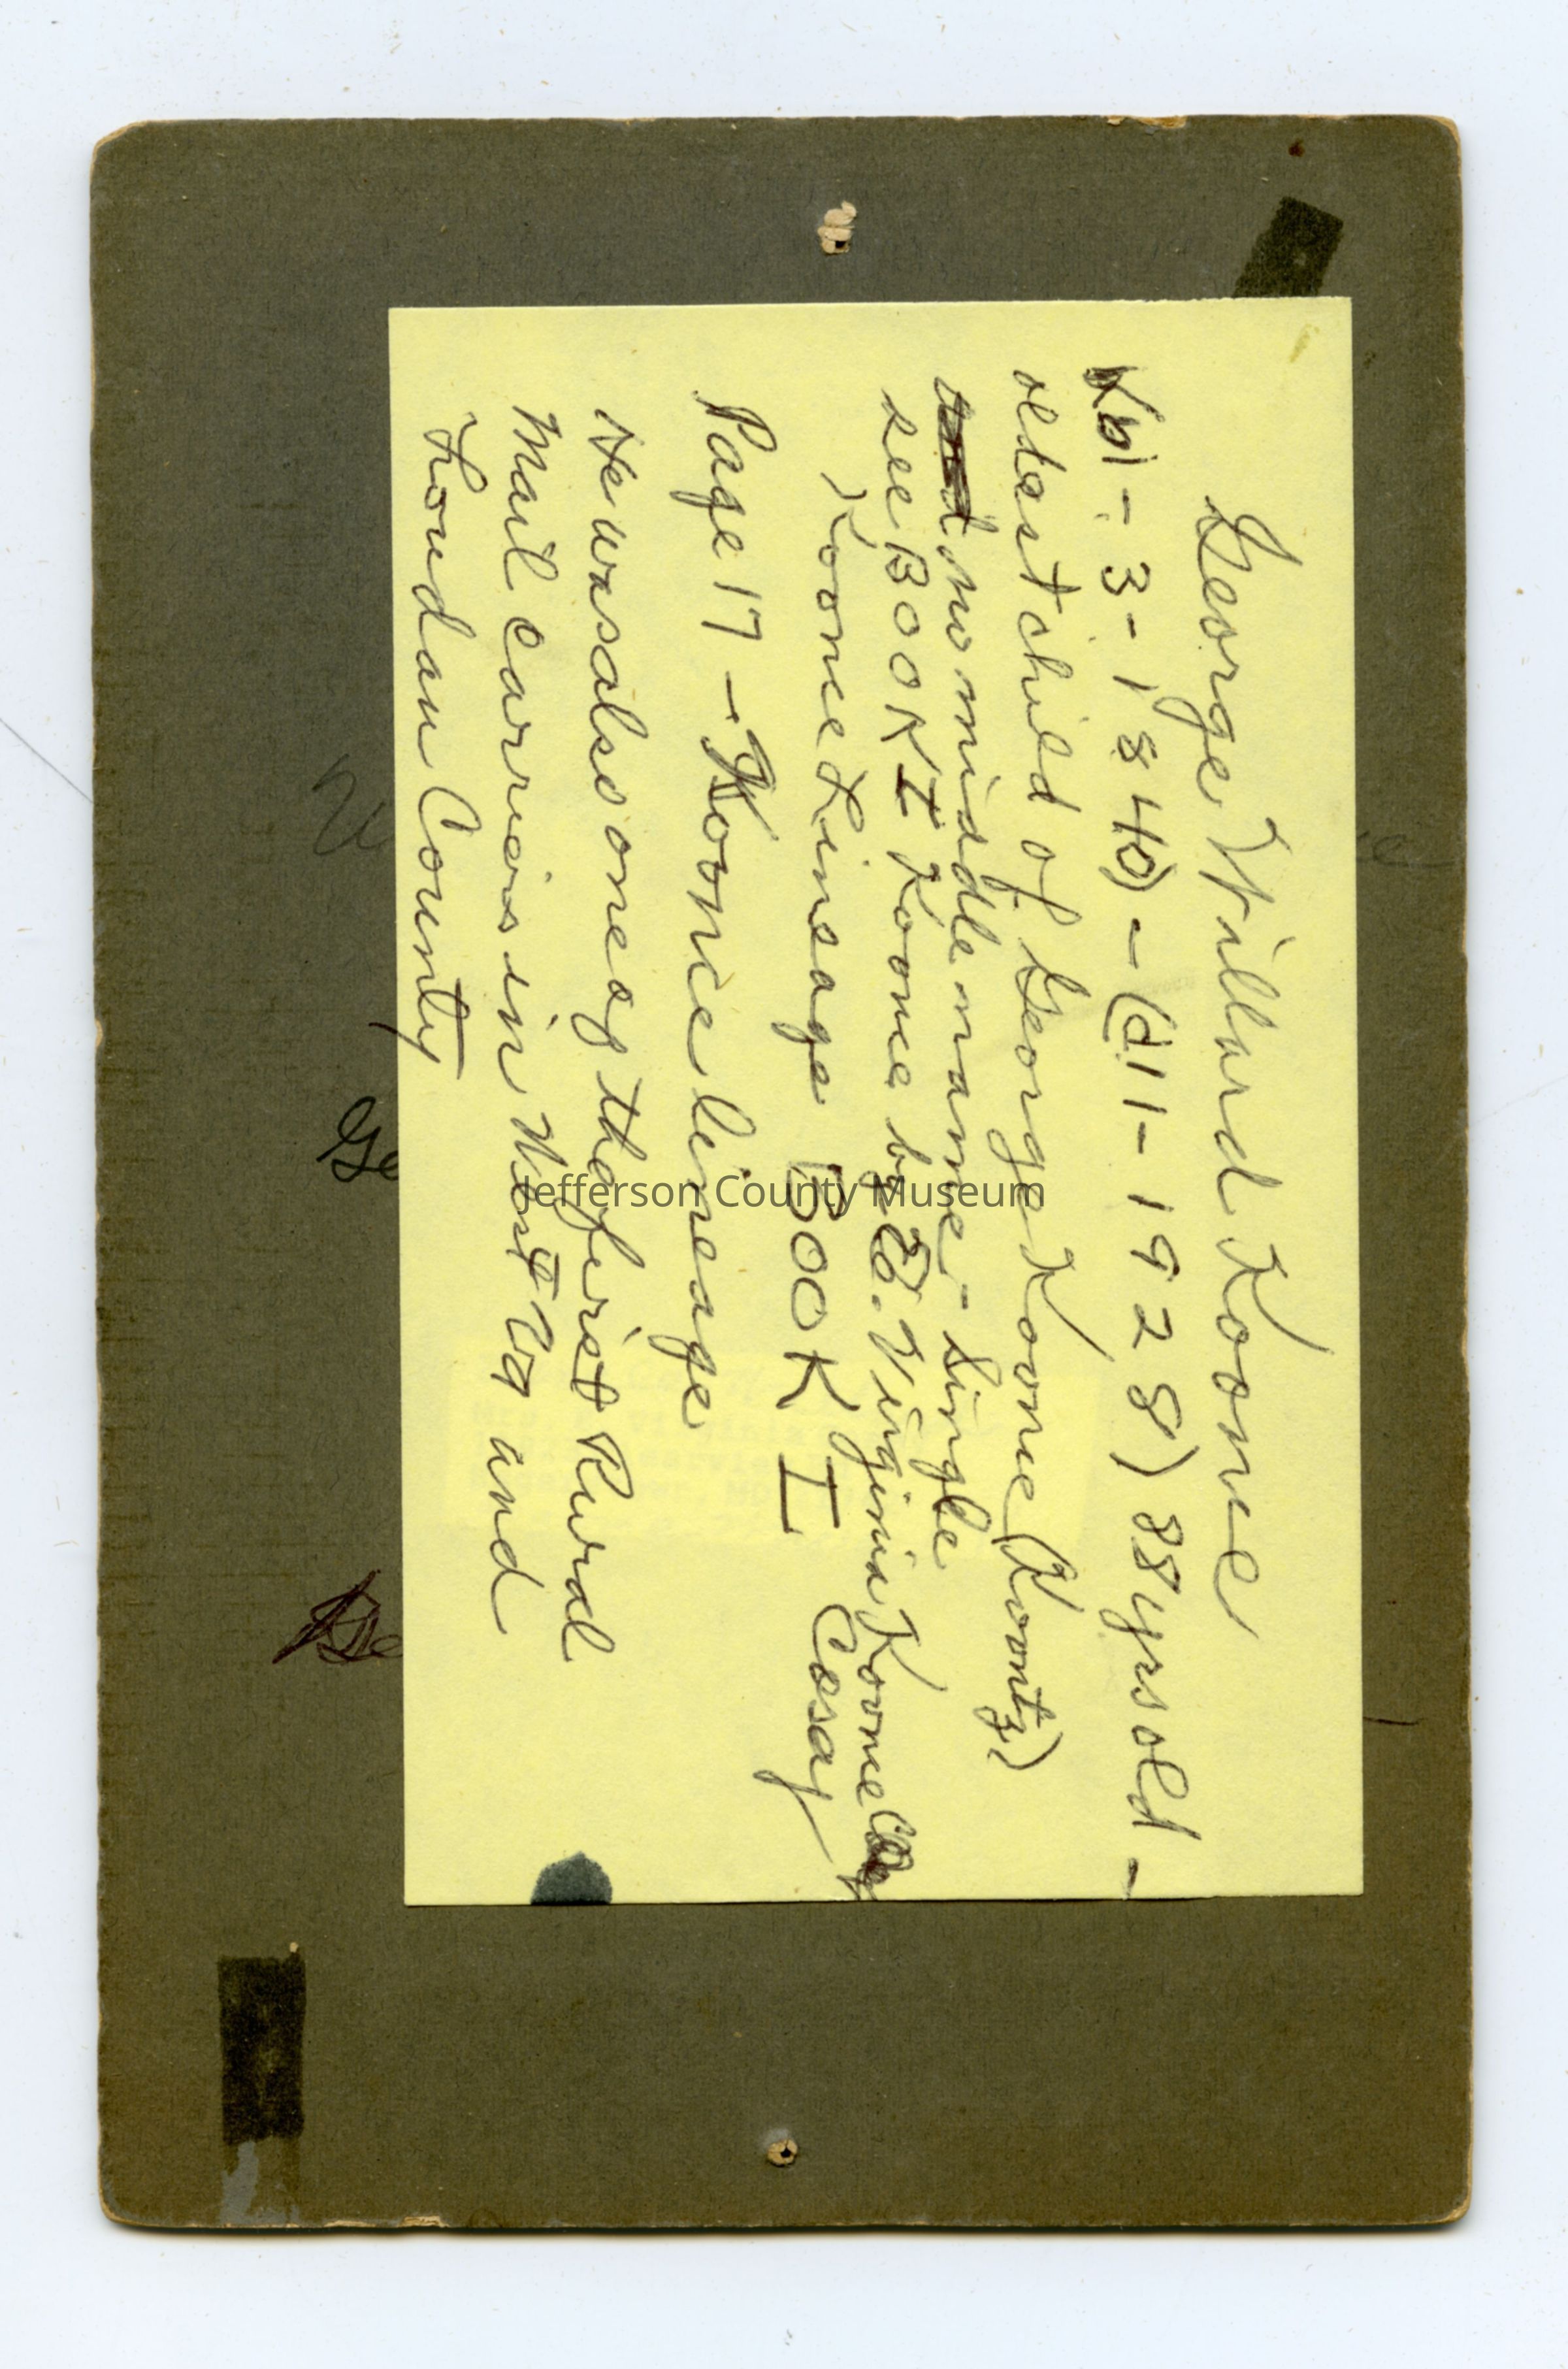 George Willard Koonce
(b1-3-1840) - (d11-1928) 88 yrs old -
oldest child of George Koonce (Koontz)
and no middle name - Single
see BOOK I Koonce by E. Virginia Koonce
Koonce Lineage BOOK I Cosay
Page 17 - Koonce lineage
He was also one of the first Rural
Mail carriers in West Va and
Loudoun County
Ge
Jefferson County Museum